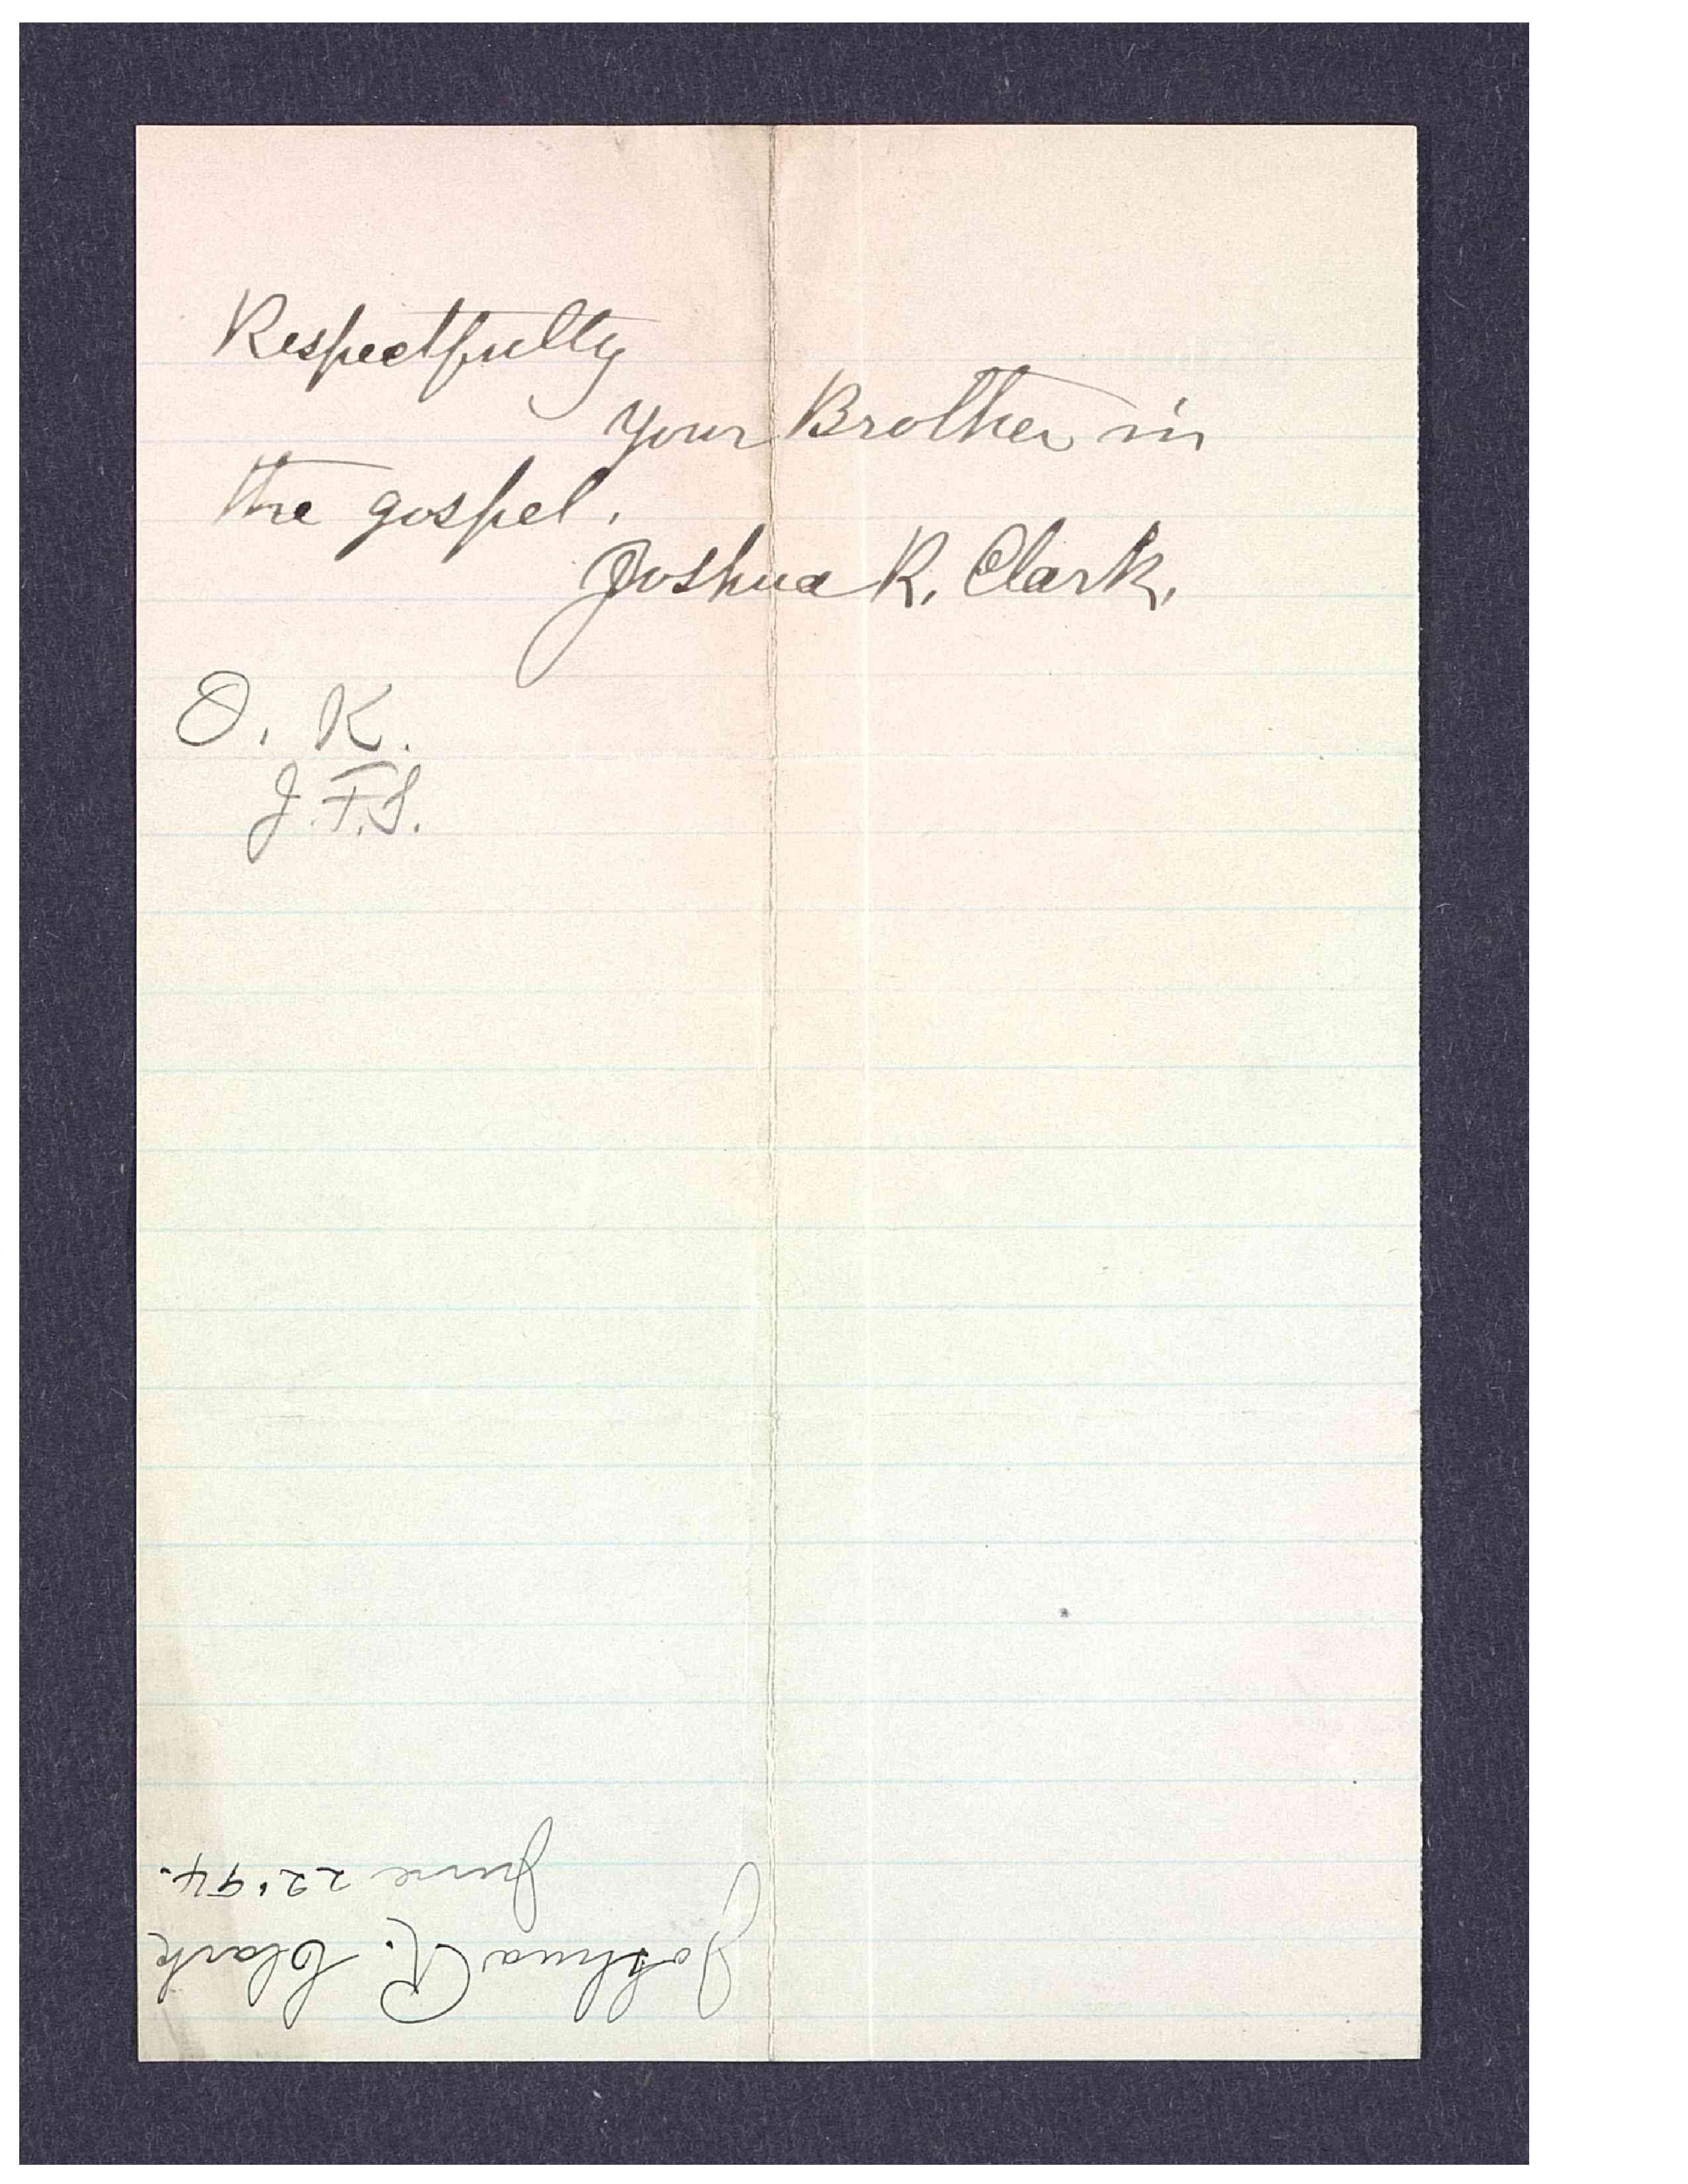 Respectfully
Your Brother in
the gospel.
Joshua R. Clark.
O. K.
J. F. S.
Joshua R. Clark
June 22 '94.